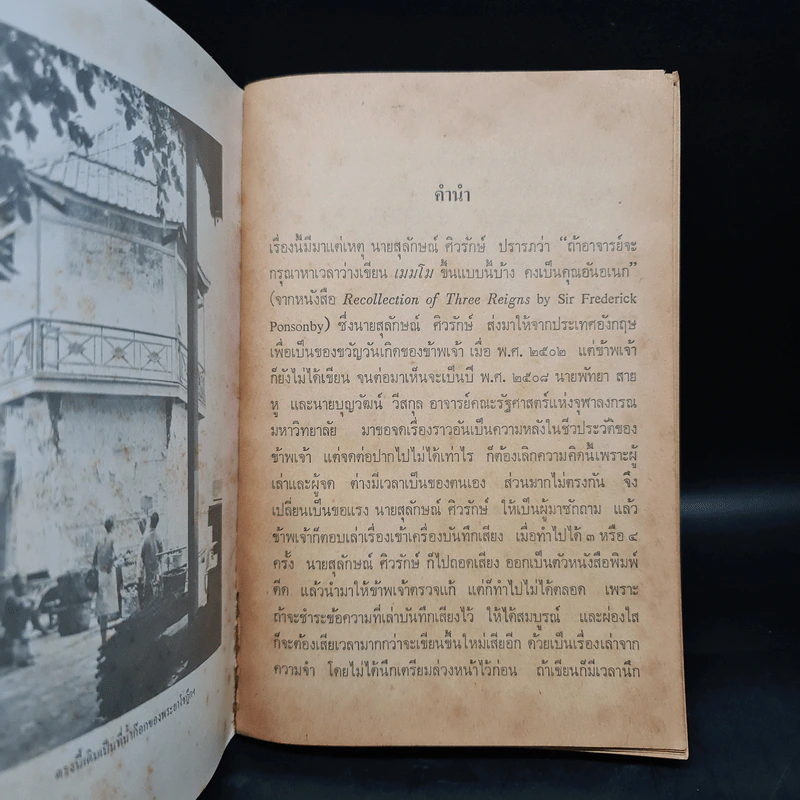 ตรงนี้เดิมเป็นที่
คำนำ
เรื่องนี้มีมาแต่เหตุ นายสุลักษณ์ ศิวรักษ์ ปรารภว่า “ถ้าอาจารย์จะ
กรุณาหาเวลาว่างเขียน เมมโม ขึ้นแบบนี้บ้าง คงเป็นคุณอันอเนก”
(จากหนังสือ Recollection of Three Reigns by Sir Frederick
Ponsonby) ซึ่งนายสุลักษณ์ ศิวรักษ์ ส่งมาให้จากประเทศอังกฤษ
เพื่อเป็นของขวัญวันเกิดของข้าพเจ้า เมื่อ พ.ศ. ๒๕๐๒ แต่ข้าพเจ้า
ก็ยังไม่ได้เขียน จนต่อมาเห็นจะเป็นปี พ.ศ. ๒๕๐๘ นายพัทยา สาย
หู และนายบุญวัฒน์ วีสกุล อาจารย์คณะรัฐศาสตร์แห่งจุฬาลงกรณ
มหาวิทยาลัย มาขอจดเรื่องราวอันเป็นความหลังในชีวประวัติของ
ข้าพเจ้า แต่จดต่อปากไปไม่ได้เท่าไร ก็ต้องเลิกความคิดนี้เพราะผู้
เล่าและผู้จด ต่างมีเวลาเป็นของตนเอง ส่วนมากไม่ตรงกัน จึง
เปลี่ยนเป็นขอแรง นายสุลักษณ์ ศิวรักษ์ ให้เป็นผู้มาซักถาม แล้ว
ข้าพเจ้าก็ตอบเล่าเรื่องเข้าเครื่องบันทึกเสียง เมื่อทำไปได้ ๓ หรือ ๔
ครั้ง นายสุลักษณ์ ศิวรักษ์ ก็ไปถอดเสียง ออกเป็นตัวหนังสือพิมพ์
ดีด แล้วนำมาให้ข้าพเจ้าตรวจแก้ แต่ก็ทำไปไม่ได้ตลอด เพราะ
ถ้าจะชำระข้อความที่เล่าบันทึกเสียงไว้ ให้ได้สมบูรณ์ และผ่องใส
ก็จะต้องเสียเวลามากกว่าจะเขียนขึ้นใหม่เสียอีก ด้วยเป็นเรื่องเล่าจาก
ความจำ โดยไม่ได้นึกเตรียมล่วงหน้าไว้ก่อน ถ้าเขียนก็มีเวลานึก